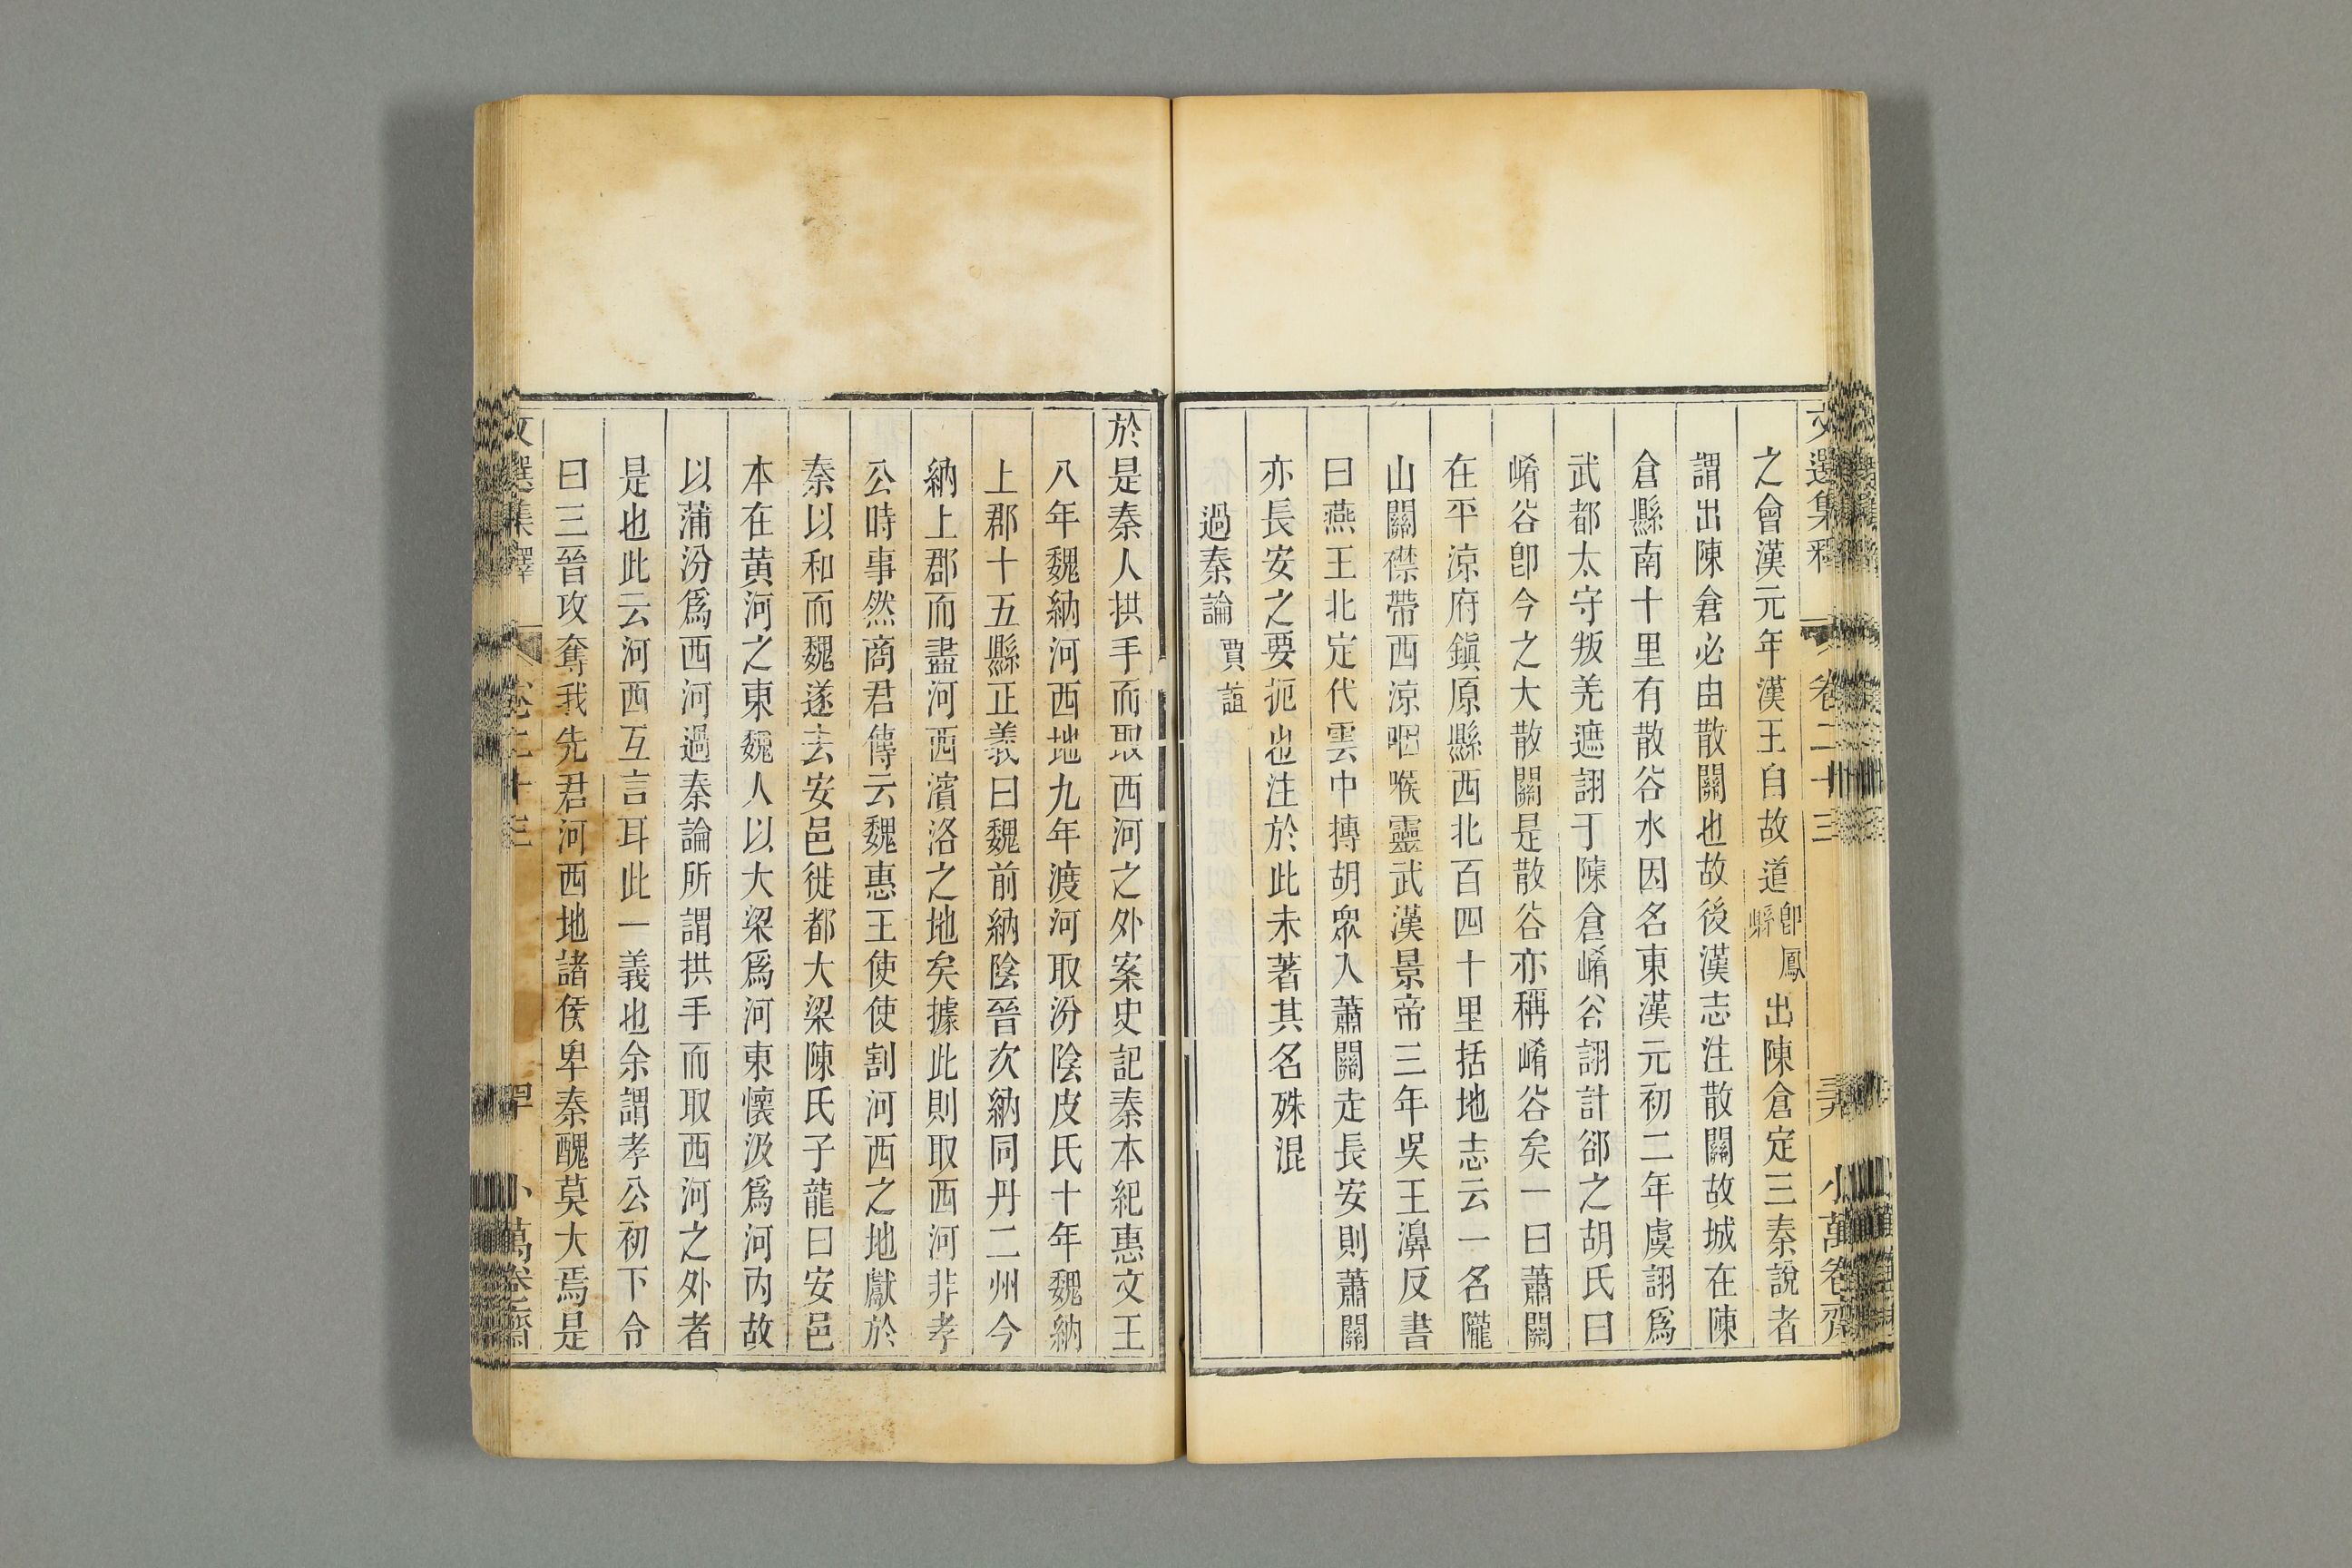 文選集釋 卷二十三 小萬卷齋
之會漢元年漢王自故道卽鳳縣出陳倉定三秦說者
謂出陳倉必由散關也故後漢志注散關故城在陳
倉縣南十里有散谷水因名東漢元初二年虞詡爲
武都太守叛羌遮詡于陳倉崤谷詡計卻之胡氏曰
崤谷卽今之大散關是散谷亦稱崤谷矣一曰蕭關
在平涼府鎮原縣西北百四十里括地志云一名隴
山關襟帶西涼咽喉靈武漢景帝三年吳王濞反書
曰燕王北定代雲中摶胡眾入蕭關走長安則蕭關
亦長安之要扼也注於此未著其名殊混
過秦論 賈誼
於是秦人拱手而取西河之外案史記秦本紀惠文王
八年魏納河西地九年渡河取汾陰皮氏十年魏納
上郡十五縣正義曰魏前納陰晉次納同丹二州今
納上郡而盡河西濱洛之地矣據此則取西河非孝
公時事然商君傳云魏惠王使使割河西之地獻於
秦以和而魏遂去安邑徙都大梁陳氏子龍曰安邑
本在黃河之東魏人以大梁爲河東懷汲爲河內故
以蒲汾爲西河過秦論所謂拱手而取西河之外者
是也此云河西互言耳此一義也余謂孝公初下令
曰三晉攻奪我先君河西地諸侯卑秦醜莫大焉是
文選集釋 卷二十三 罕 小萬卷齋